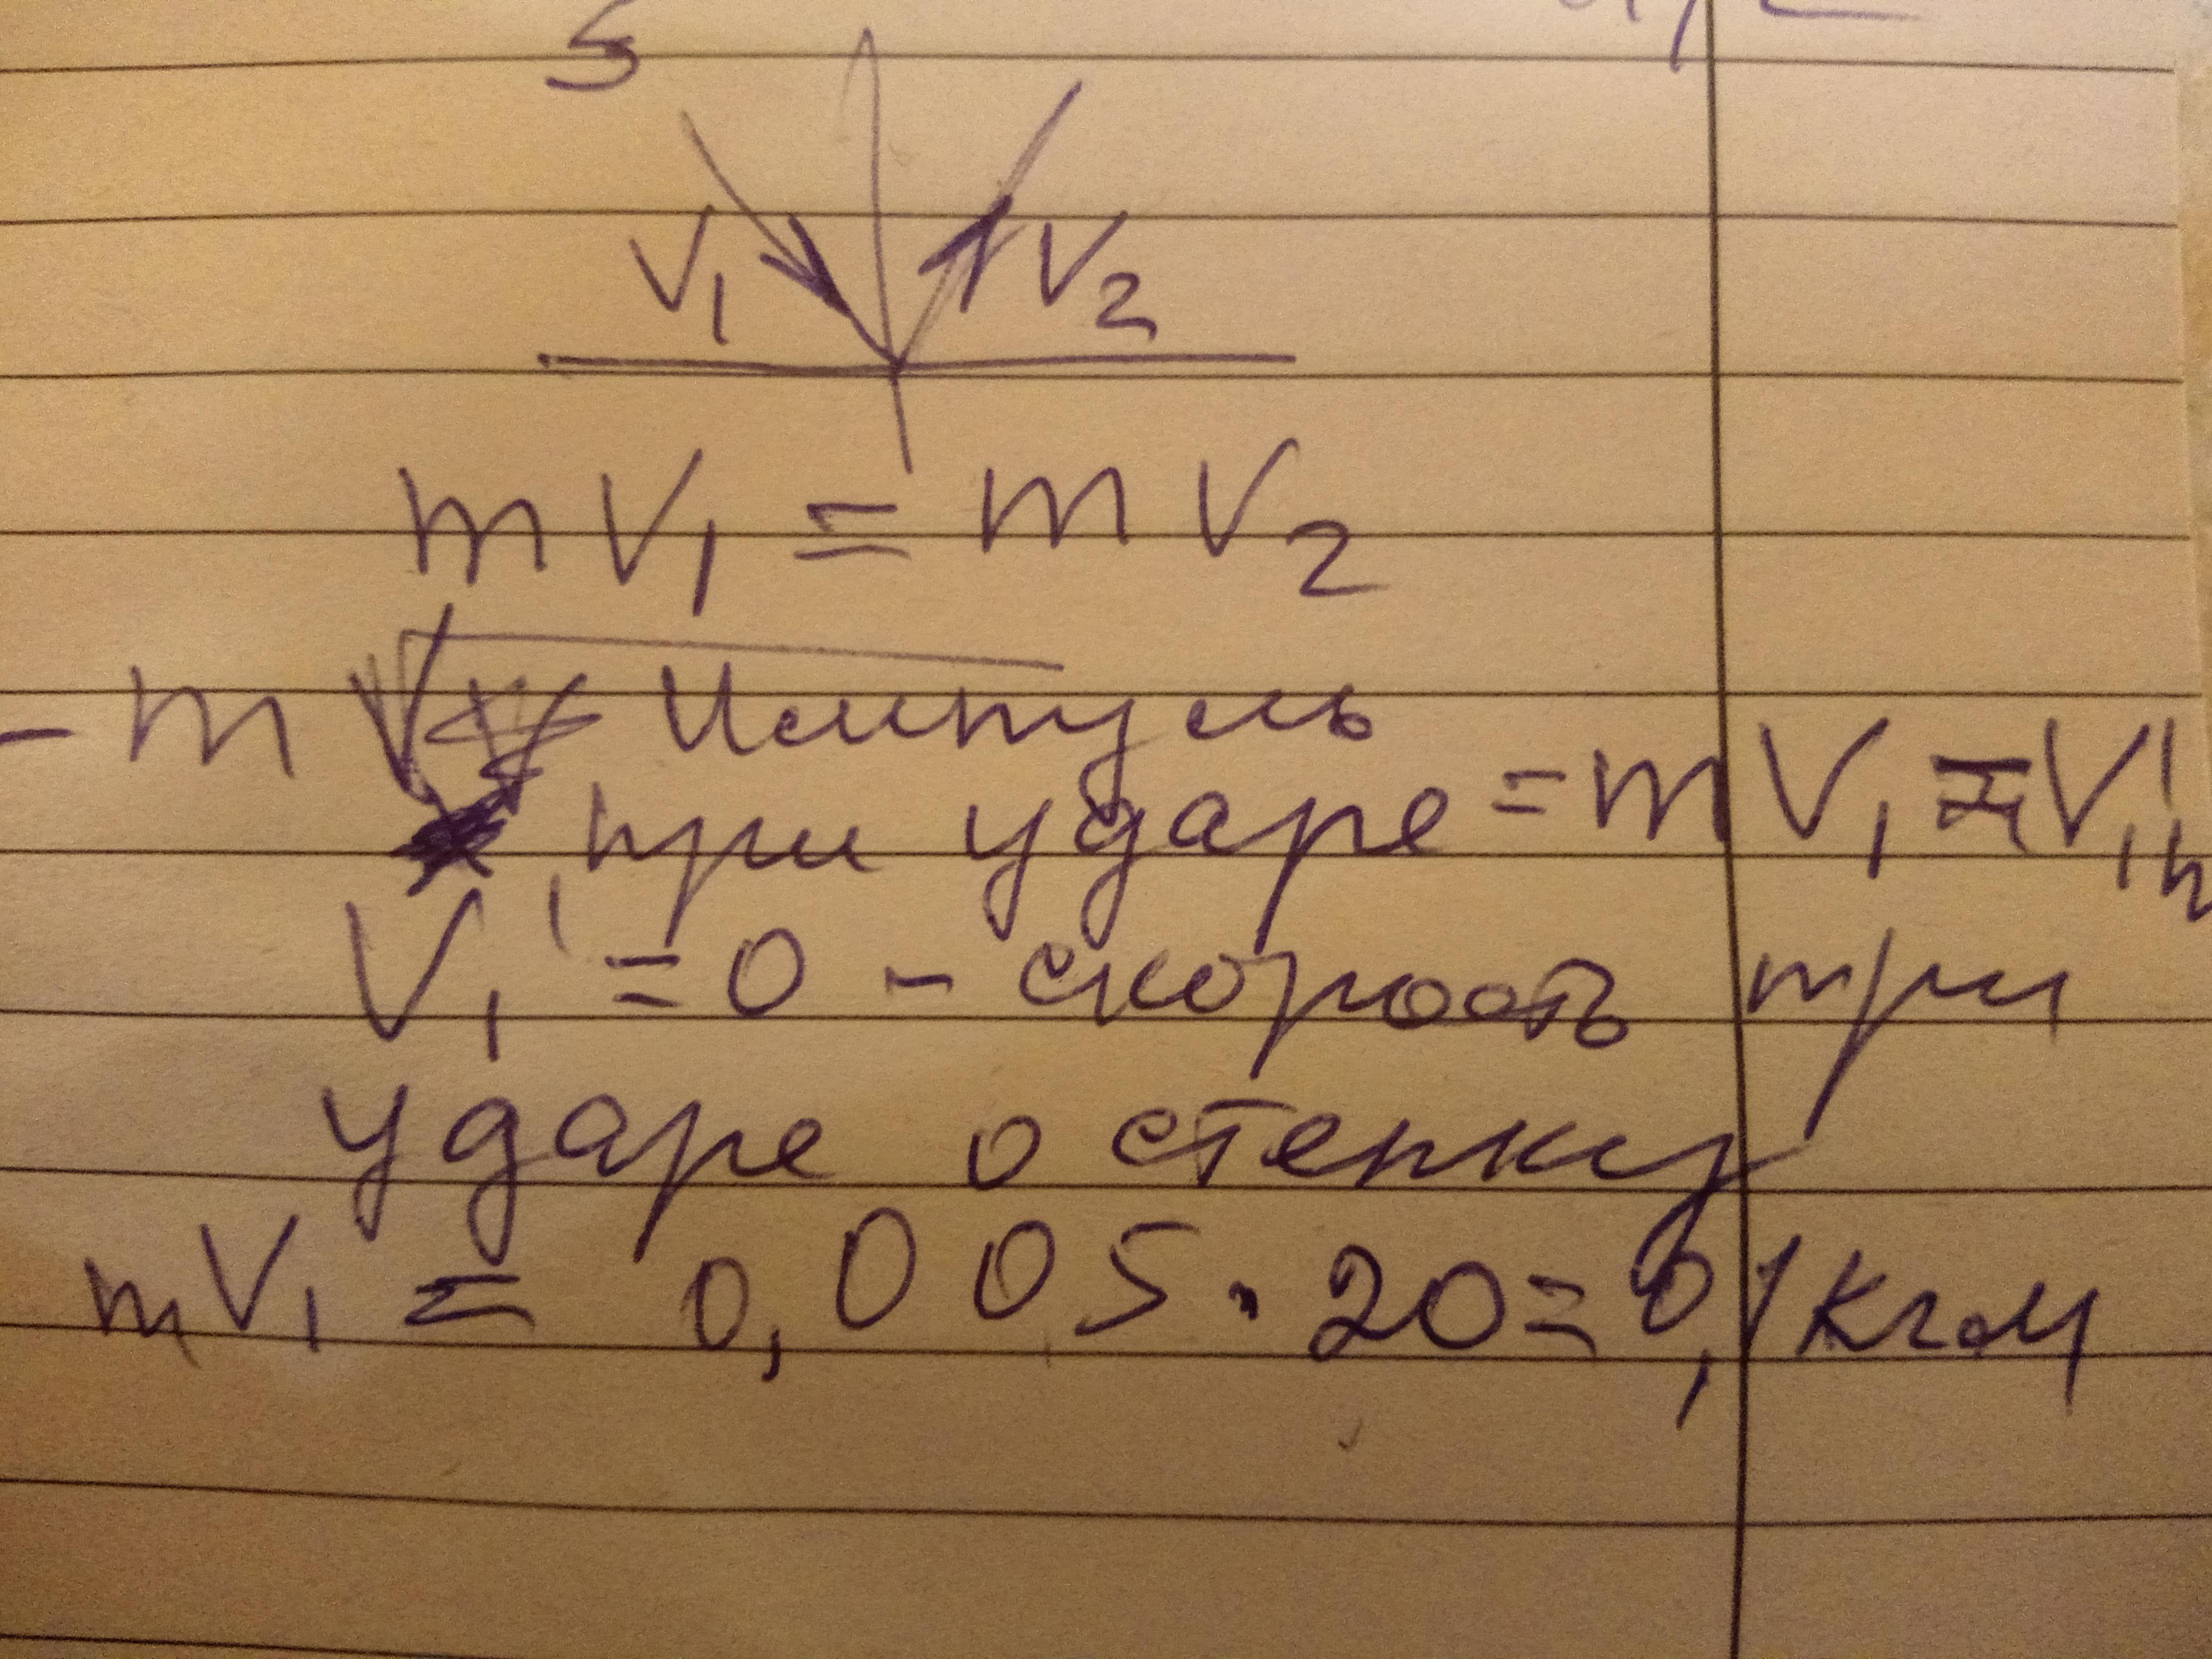 5
V₁ V₂
mV₁ = mV₂
- m V Импуль
при ударе = m V₁ = V₁'
V₁' = 0 - скорость при
ударе о стенку
mV₁ = 0,005 · 20 = 0,1 кгм